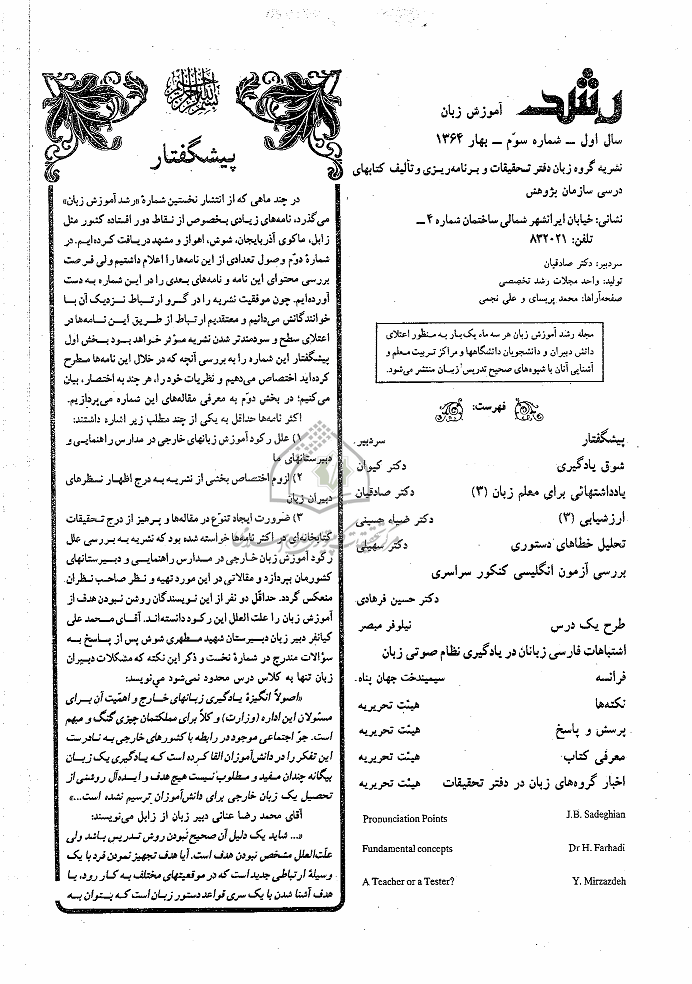 رشد آموزش زبان
سال اول ــ شماره سوّم ــ بهار ۱۳۶۴
نشریه گروه زبان دفتر تحقیقات و برنامه‌ریزی و تألیف کتابهای
درسی سازمان پژوهش
نشانی: خیابان ایرانشهر شمالی ساختمان شماره ۴ــ
تلفن: ۸۳۲۰۲۱
سردبیر: دکتر صادقیان
تولید: واحد مجلات رشد تخصصی
صفحه‌آراها: محمد پریسای و علی نجمی
مجله رشد آموزش زبان هر سه ماه یک بار به منظور اعتلای
دانش دبیران و دانشجویان دانشگاهها و مراکز تربیت معلم و
آشنایی آنان با شیوه‌های صحیح تدریس زبان منتشر می‌شود.
فهرست:
پیشگفتار سردبیر
شوق یادگیری دکتر کیوان
یادداشتهائی برای معلم زبان (۳) دکتر صادقیان
ارزشیابی (۳) دکتر ضیاء حسینی
تحلیل خطاهای دستوری دکتر سهیلی
بررسی آزمون انگلیسی کنکور سراسری
دکتر حسین فرهادی
طرح یک درس نیلوفر مبصر
اشتباهات فارسی زبانان در یادگیری نظام صوتی زبان
فرانسه سیمیندخت جهان پناه.
نکته‌ها هیئت تحریریه
پرسش و پاسخ هیئت تحریریه
معرفی کتاب هیئت تحریریه
اخبار گروه‌های زبان در دفتر تحقیقات هیئت تحریریه
Pronunciation Points J.B. Sadeghian
Fundamental concepts Dr H. Farhadi
A Teacher or a Tester? Y. Mirzazdeh
پیشگفتار
در چند ماهی که از انتشار نخستین شمارهٔ «رشد آموزش زبان»
می‌گذرد، نامه‌های زیادی بخصوص از نقاط دور افتاده کشور مثل
زابل، ماکوی آذربایجان، شوش، اهواز و مشهد دریافت کرده‌ایم. در
شمارهٔ دوّم وصول تعدادی از این نامه‌ها را اعلام داشتیم ولی فرصت
بررسی محتوای این نامه و نامه‌های بعدی را در این شماره به دست
آورده‌ایم. چون موفقیت نشریه را در گرو ارتباط نزدیک آن با
خوانندگانش می‌دانیم و معتقدیم ارتباط از طریق این نامه‌ها در
اعتلای سطح و سودمندتر شدن نشریه مؤثر خواهد بود بخش اول
پیشگفتار این شماره را به بررسی آنچه که در خلال این نامه‌ها مطرح
کرده‌اید اختصاص می‌دهیم و نظریات خود را، هر چند به اختصار، بیان
می‌کنیم؛ در بخش دوّم به معرفی مقاله‌های این شماره می‌پردازیم.
اکثر نامه‌ها حداقل به یکی از چند مطلب زیر اشاره داشتند:
۱) علل رکود آموزش زبانهای خارجی در مدارس راهنمایی و
دبیرستانهای ما
۲) لزوم اختصاص بخشی از نشریه به درج اظهار نظرهای
دبیران زبان
۳) ضرورت ایجاد تنوّع در مقاله‌ها و پرهیز از درج تحقیقات
کتابخانه‌ای در اکثر نامه‌ها خواسته شده بود که نشریه به بررسی علل
رکود آموزش زبان خارجی در مدارس راهنمایی و دبیرستانهای
کشورمان بپردازد و مقالاتی در این مورد تهیه و نظر صاحب نظران
منعکس گردد. حداقل دو نفر از این نویسندگان روشن نبودن هدف از
آموزش زبان را علت العلل این رکود دانسته‌اند. آقای محمد علی
کیانفر دبیر زبان دبیرستان شهید مطهری شوش پس از پاسخ به
سؤالات مندرج در شمارهٔ نخست و ذکر این نکته که مشکلات دبیران
زبان تنها به کلاس درس محدود نمی‌شود می‌نویسند:
«اصولاً انگیزهٔ یادگیری زبانهای خارج و اهمّیت آن برای
مسئولان این اداره (وزارت) و کلاً برای مملکتمان چیزی گنگ و مبهم
است. جوّ اجتماعی موجود در رابطه با کشورهای خارجی به نادرست
این تفکر را در دانش‌آموزان القا کرده است که یادگیری یک زبان
بیگانه چندان مفید و مطلوب نیست هیچ هدف و ایده‌آل روشنی از
تحصیل یک زبان خارجی برای دانش‌آموزان ترسیم نشده است...»
آقای محمد رضا عنانی دبیر زبان از زابل می‌نویسند:
«... شاید یک دلیل آن صحیح نبودن روش تدریس باشد ولی
علت‌العلل مشخص نبودن هدف است. آیا هدف تجهیز نمودن فرد با یک
وسیلهٔ ارتباطی جدید است که در موقعیتهای مختلف به کار رود، یا
هدف آشنا شدن با یک سری قواعد دستور زبان است که بتوان به